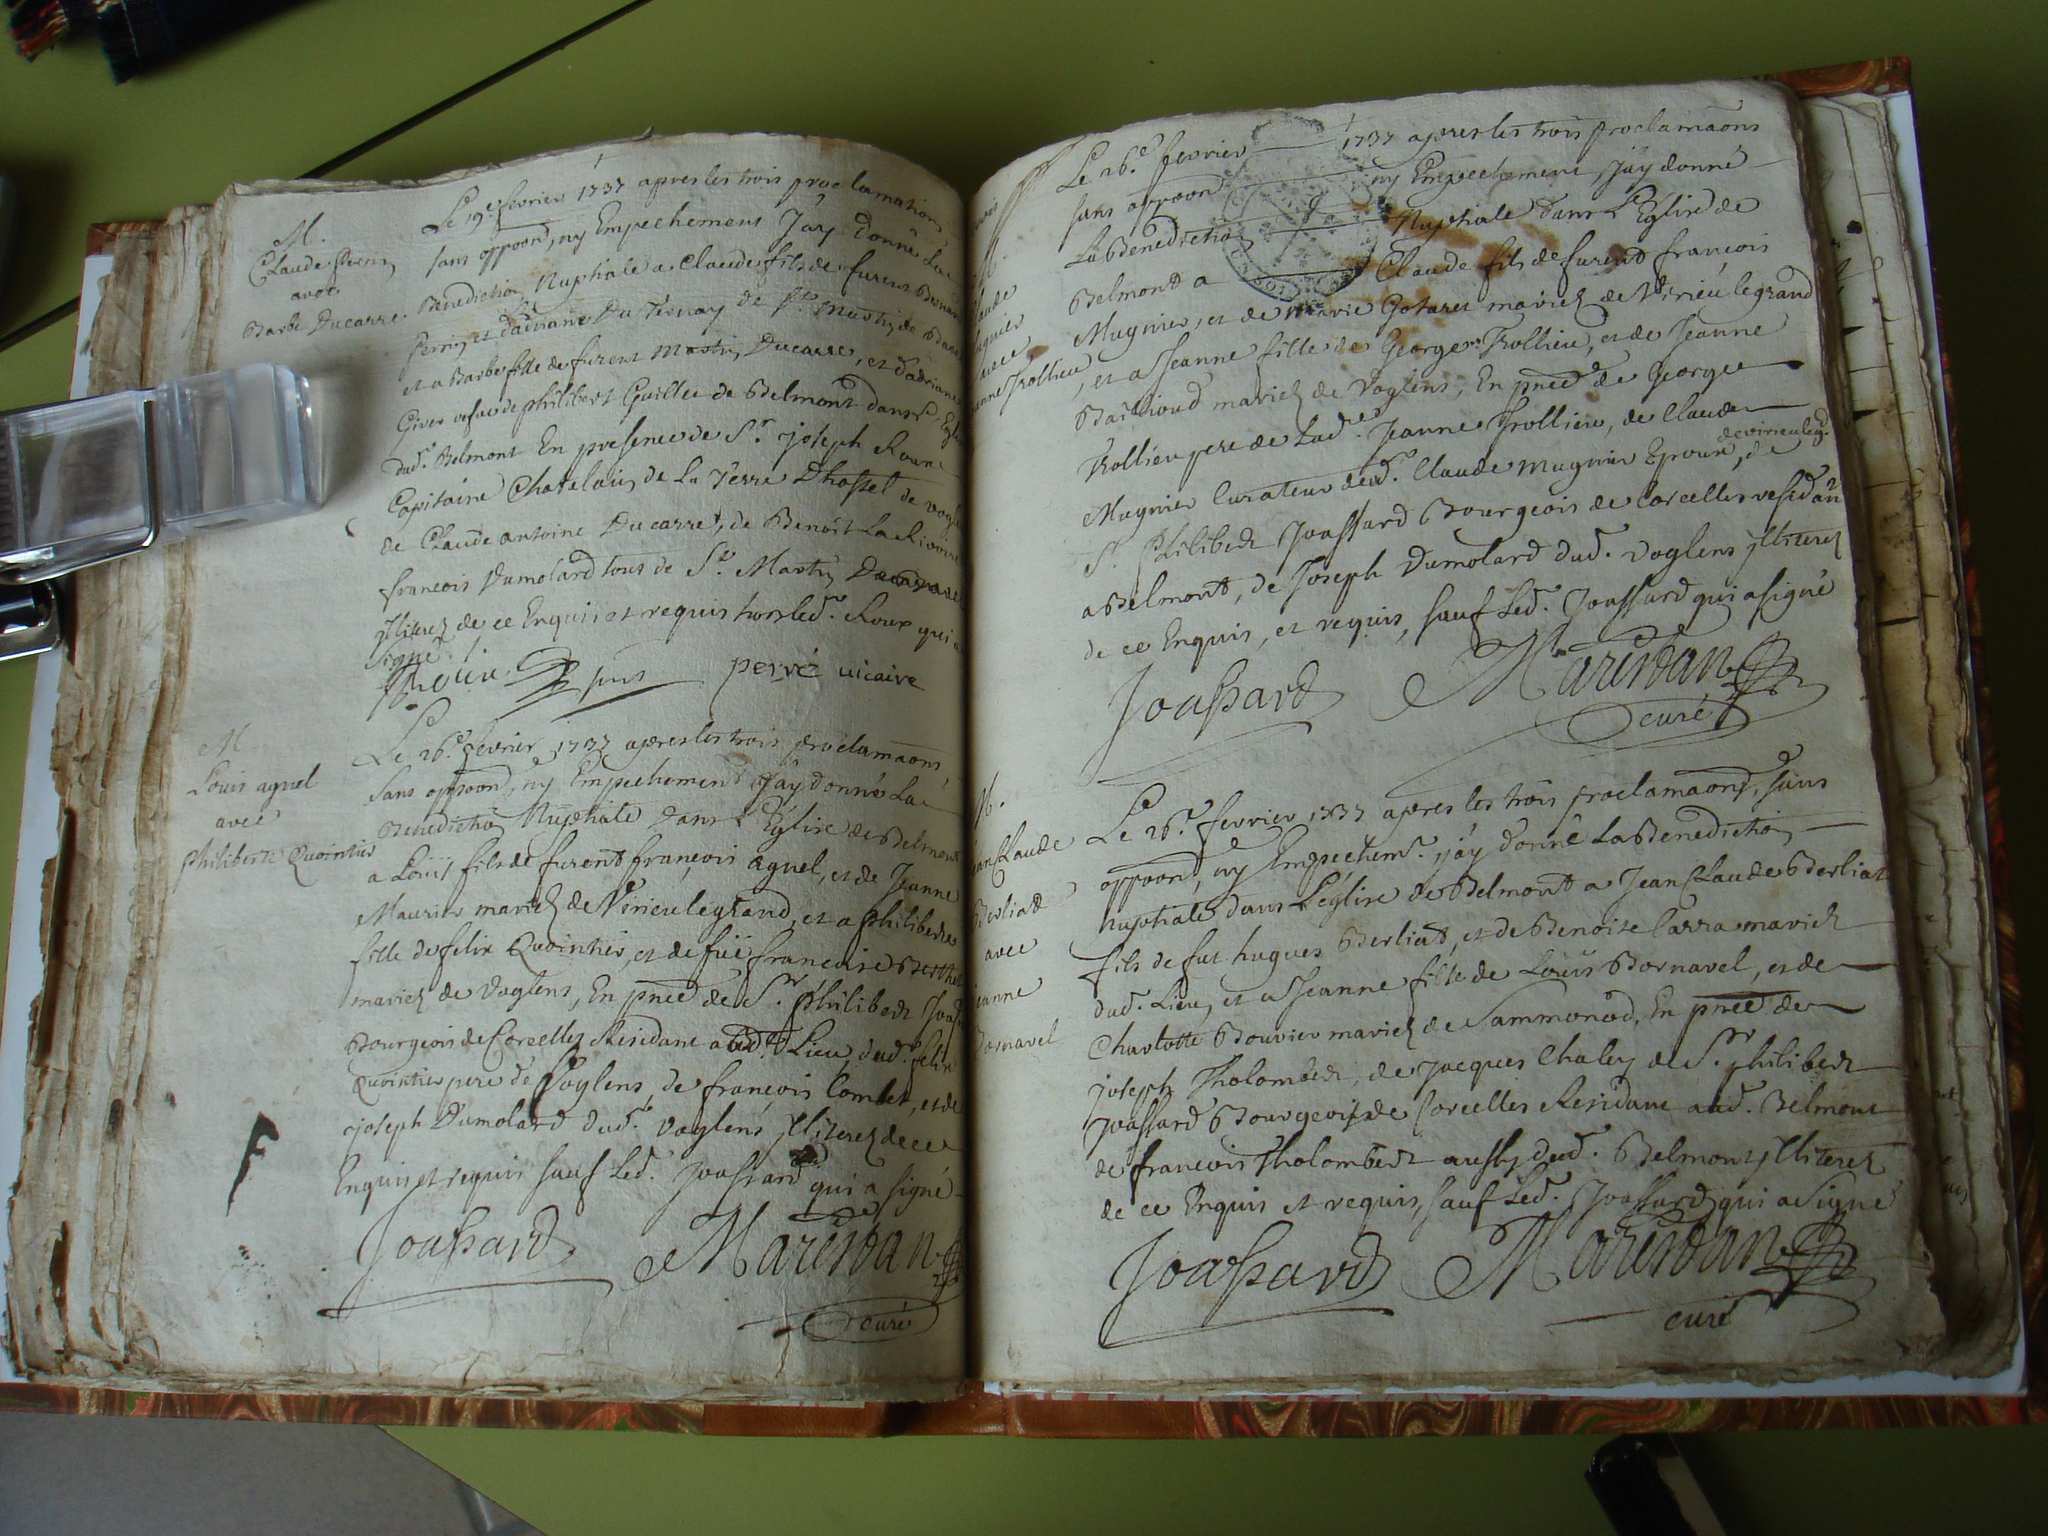 M.
Claude Perrin
avec
Barbe Ducarre.
Le 19e. fevrier 1737 apres les trois proclamation
sans oppoond, ny Empechement Jay donné La
Benediction Nuptiale a Claude fils de furent Bernard
Perrin et d'adriane Du Ternay de St. Martin de
et a Barbe fille de furent Martin Ducarre, et d'adriane
vefue de philibert Guillet de Belmont dans L'Eglise
dud. Belmont En presence de Sr. joseph Roux
Capitaine Chatelain de La Terre Dhostel de
de Claude antoine Ducarre, de Benoit La Riviere
francois Dumolard tous de St. Martin
jlliterez de ce Enquis et requis hors led. Roux qui a
signé
Roux pervé vicaire
M
Louis agnel
avec
philiberte Quointier
Le 26e. fevrier 1737 apres les trois proclamaons,
sans oppoond, ny Empechement Jay donné La
Benediction Nuptiale dans L'Eglise de Belmont
a Louis fils de furent françois agnel, et de Jeanne
Maurier mariez de Virieulegrand, et a philiberte
fille de felix Quointier, et de füe francoise
mariez de Voglens, En pnce de Sr. philibert
Bourgeois de Corcelles Residant aud. Lieu, dud. felix
Quointier pere de Voglens, de françois Combet, et de
joseph Dumolard dud. Voglens jlliterez de ce
Enquis et requis sauf Led. Joassard qui a signé
Joassard Marindan
curé
avec
Jeanne Trollieu
Le 26e. fevrier 1737 apres les trois proclamaons
sans oppoond ny Empechement, jay donné
La Benediction Nuptiale dans L'Eglise de
Belmont a Claude fils de furent francois
Mugnier, et de Marie Gotaret mariez de Virieu legrand
, et a Jeanne fille de George Trollieu, et de Jeanne
Baillioud mariez de Voglens, En pnce de George
Trollieu pere de Lad. Jeanne Trollieu, de Claude
de virieulegd.
Mugnier Curateur dud. Claude Mugnier Epoux, de
Sr. Philibert Joassard Bourgeois de Corcelles residant
a Belmont, de Joseph Dumolard dud. Voglens jlliterez
de ce Enquis, et requis, sauf Led. Joassard qui a signé
Joassard Marindan
curé
M.
Jean Claude
Berliat
avec
jeanne
Bornavel
Le 26e. fevrier 1737 apres les trois proclamaons, sans
oppoond, ny Empechemt. jay donné La Benediction
nuptiale dans L'église de Belmont a Jean Claude Berliat
fils de fut hugues Berliat, et de Benoite Carra mariez
dud. Lieu, et a Jeanne fille de Louis Bornavel, et de
Charlotte Bouvier mariez de Sammonod, En pnce de
joseph Tholombert, de Jacques Chaley de Sr. philibert
Joassard Bourgeois de Corcelles Residant aud. Belmont
de francois Tholombert aussy dud. Belmont jlliterez
de ce Enquis et requis, sauf Led. Joassard qui a Signé
Joassard Marindan
curé